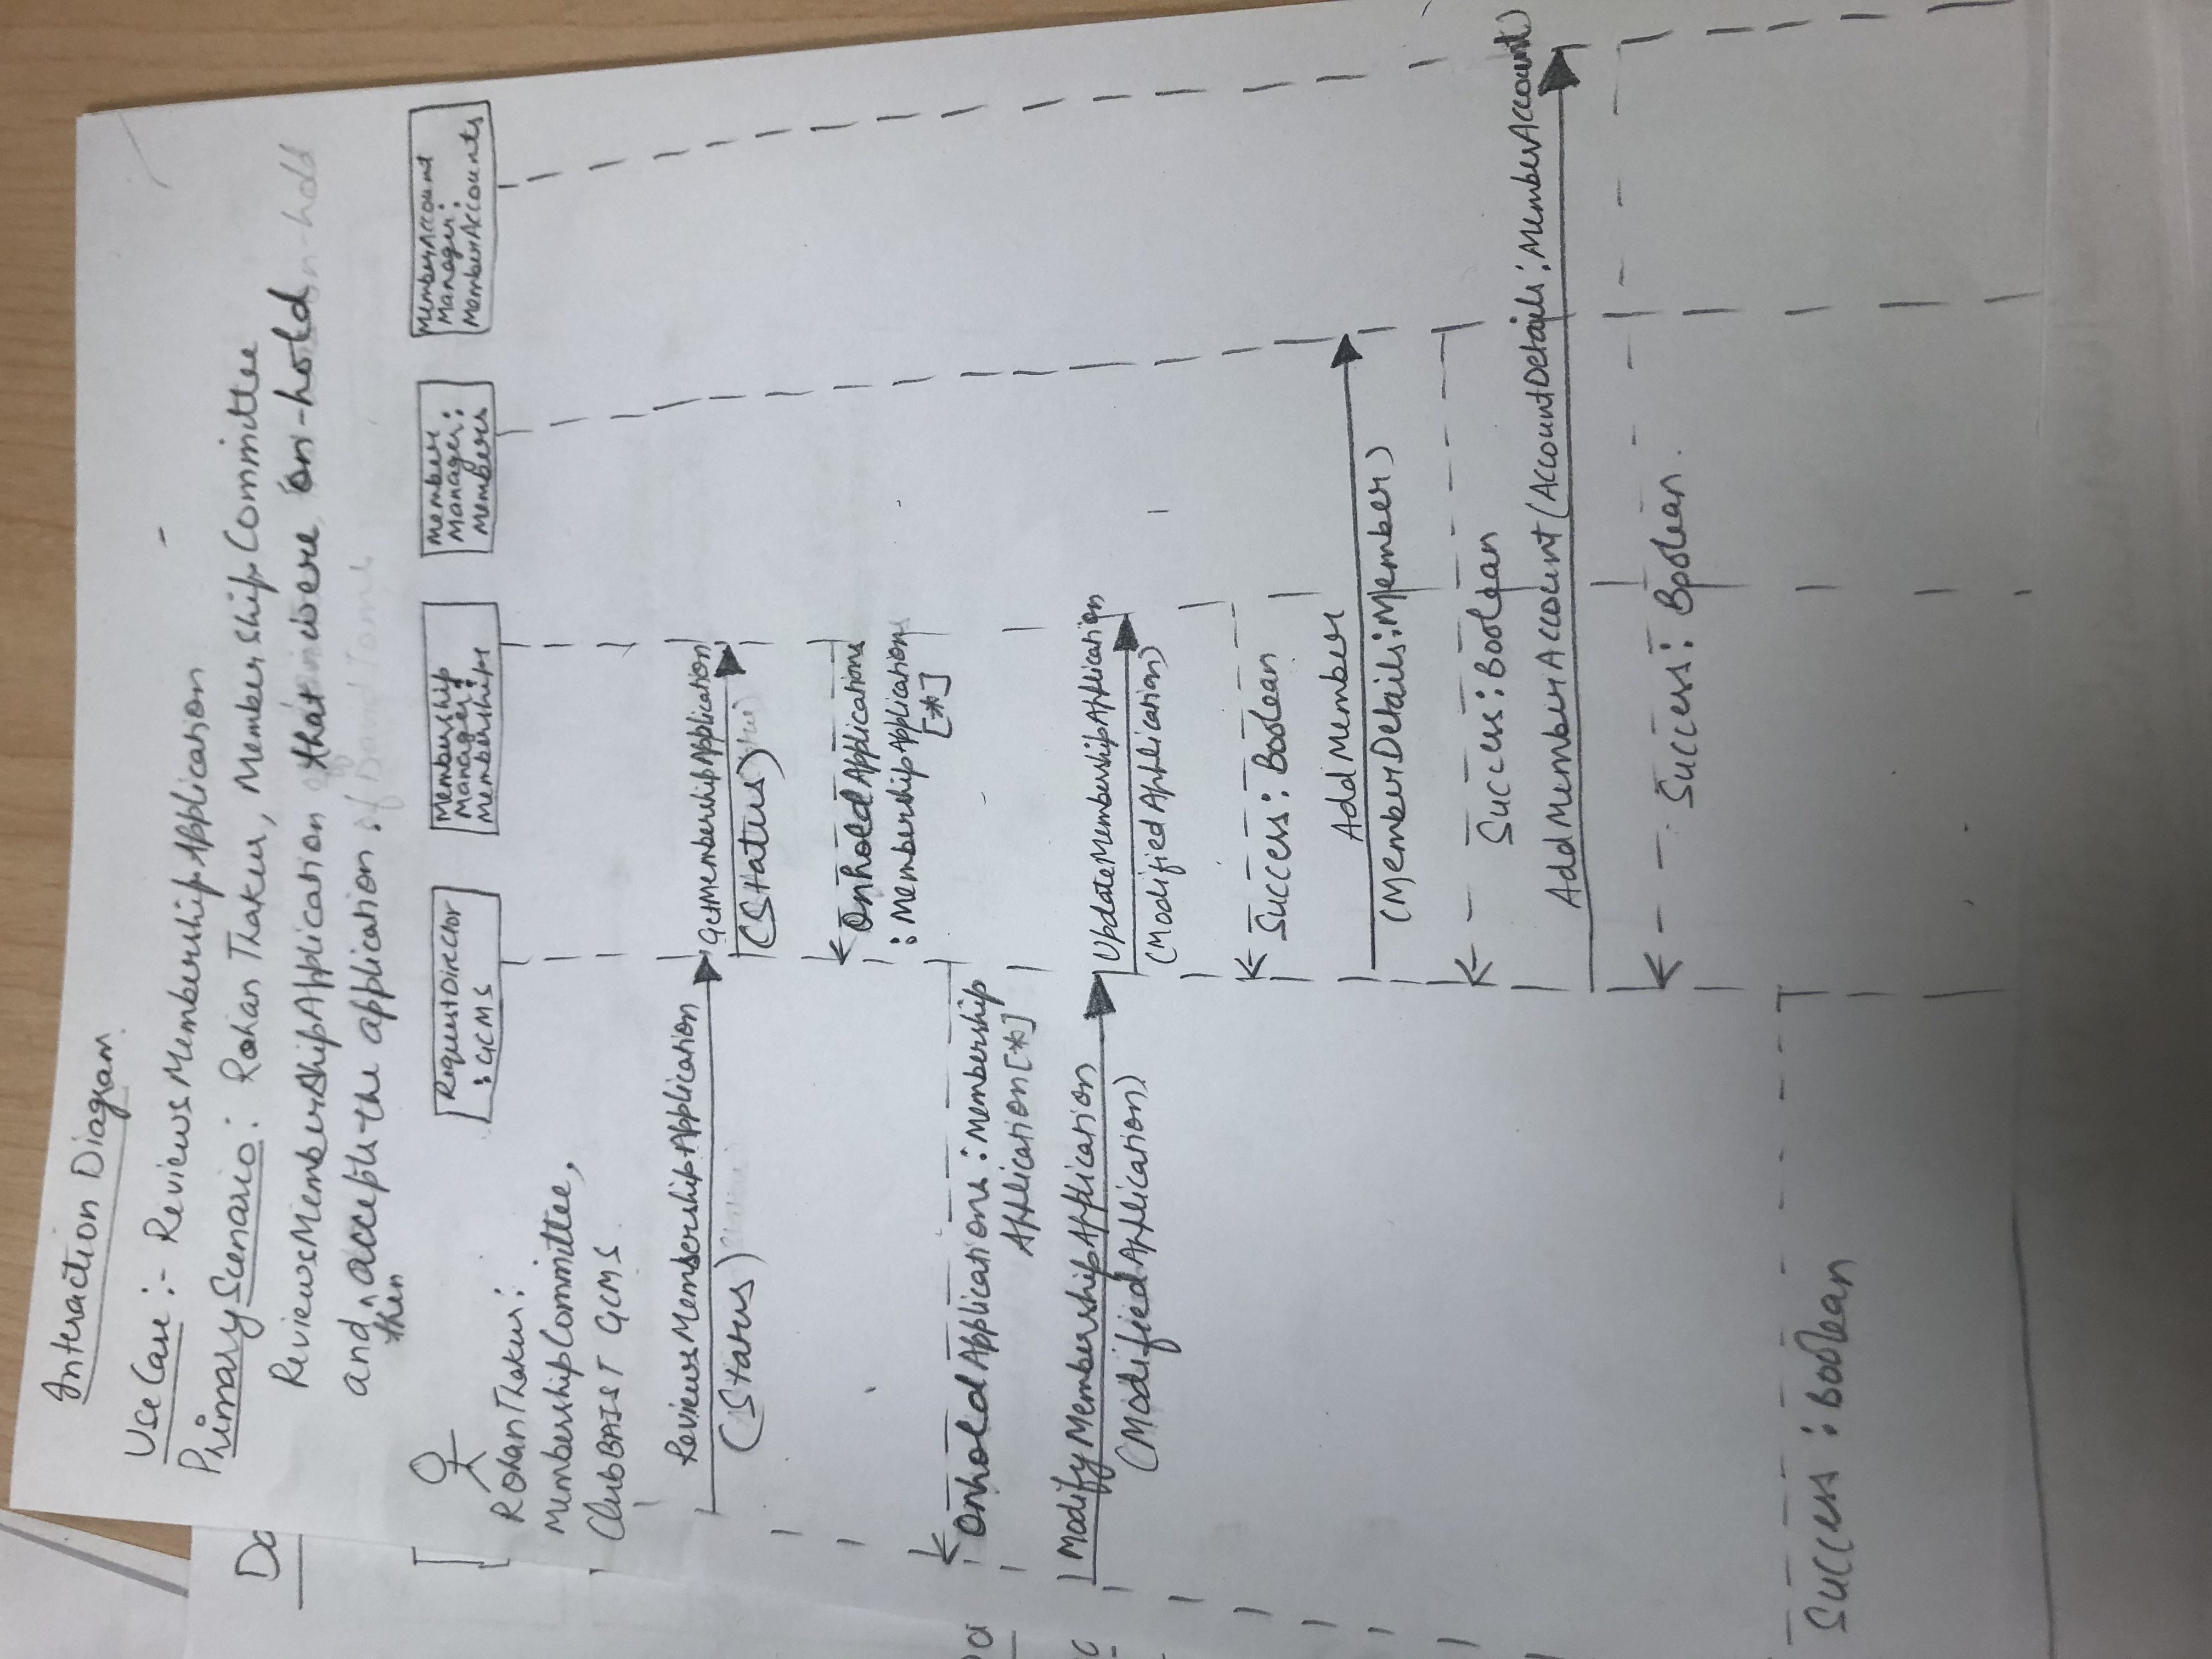 Interaction Diagram
UseCase :- ReviewsMembershipApplication
PrimaryScenario: Rohan Thakur, MemberShipCommittee
ReviewsMemberShipApplication that were on-hold
and then accepts the application.
RequestDirector
: GCMS
Membership
Manager:
Memberships
Member
Manager:
Members
MemberAccount
Manager:
MemberAccounts
Rohan Thakur:
MembershipCommittee,
ClubBAIST GCMS
ReviewsMembershipApplication
(Status)
GetMembershipApplication
(Status)
OnholdApplications
: MembershipApplication
[*]
OnholdApplications : Membership
Application[*]
ModifyMembershipApplication
(ModifiedApplication)
UpdateMembershipApplication
(ModifiedApplication)
Success: Boolean
AddMember
(MemberDetails:Member)
Success:Boolean
AddMemberAccount(AccountDetails:MemberAccount)
Success: Boolean
Success :Boolean